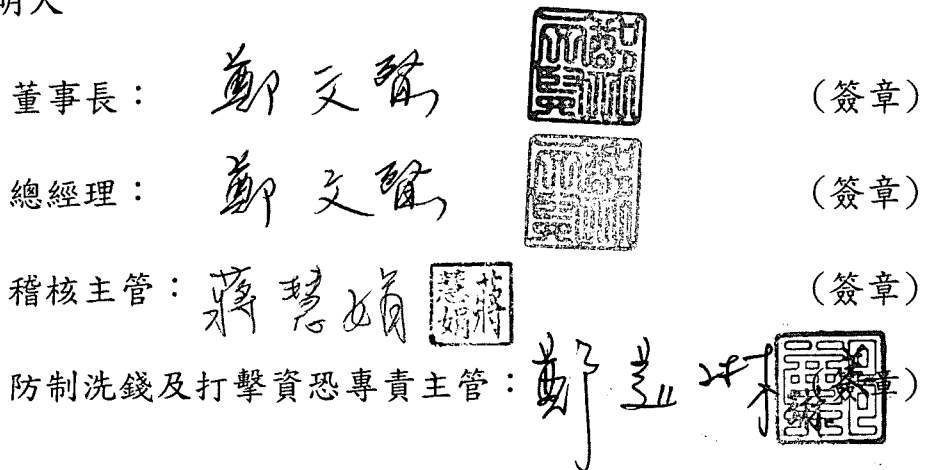 明人
董事長：鄭文賢（簽章）
總經理：鄭文賢（簽章）
稽核主管：蔣慧娟 蔣慧娟（簽章）
防制洗錢及打擊資恐專責主管：鄭（簽章）